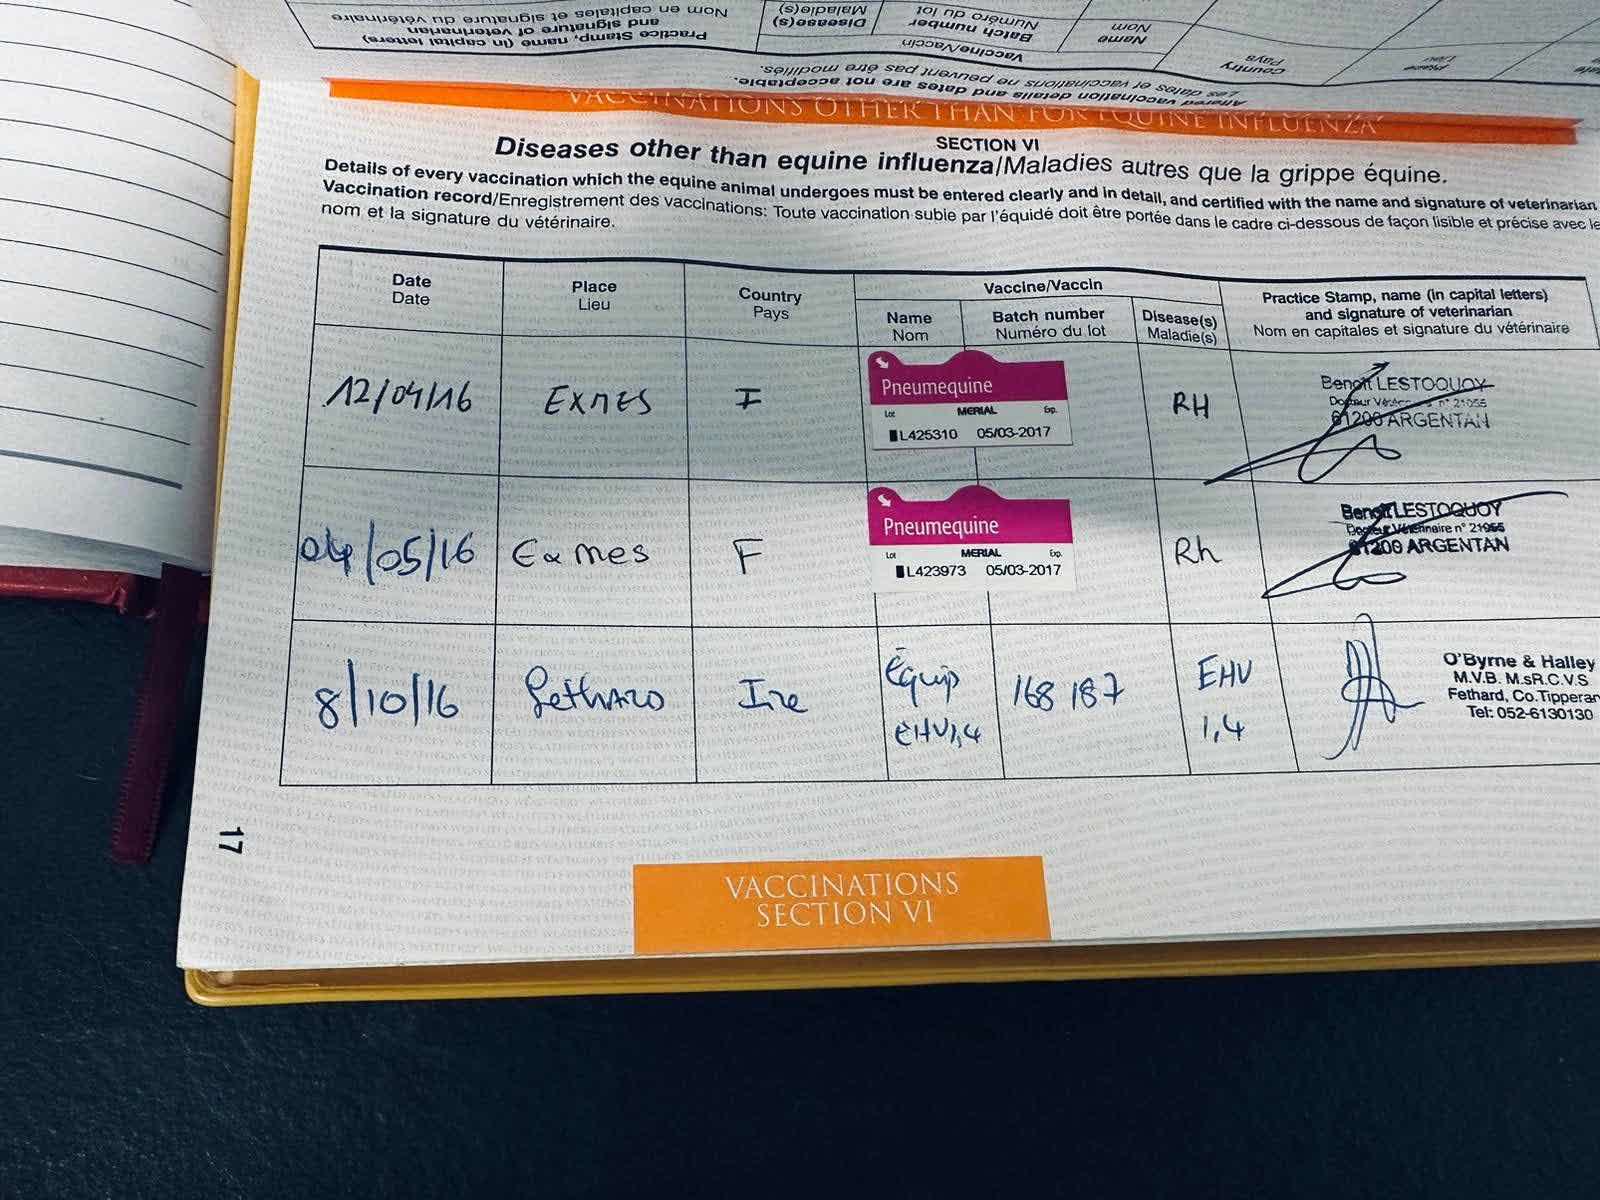 Practice Stamp, name (in capital letters)
and signature of veterinarian
Nom en capitales et signature du vétérinaire
Vaccine/Vaccin
Disease(s)
Maladie(s)
Batch number
Numéro du lot
Name
Nom
Country
Pays
Place
Lieu
Altered vaccination details and dates are not acceptable.
Les dates et vaccinations ne peuvent pas être modifiés.
VACCINATIONS OTHER THAN FOR EQUINE INFLUENZA
SECTION VI
Diseases other than equine influenza/Maladies autres que la grippe équine.
Details of every vaccination which the equine animal undergoes must be entered clearly and in detail, and certified with the name and signature of veterinarian
Vaccination record/Enregistrement des vaccinations: Toute vaccination subie par l'équidé doit être portée dans le cadre ci-dessous de façon lisible et précise avec le
nom et la signature du vétérinaire.
Date
Date
Place
Lieu
Country
Pays
Vaccine/Vaccin
Name
Nom
Batch number
Numéro du lot
Disease(s)
Maladie(s)
Practice Stamp, name (in capital letters)
and signature of veterinarian
Nom en capitales et signature du vétérinaire
12/04/16
EXMES
F
Pneumequine
Lot MERIAL Exp.
L425310 05/03-2017
RH
Benoît LESTOQUOY
Docteur Vétérinaire n° 21955
61200 ARGENTAN
04/05/16
Exmes
F
Pneumequine
Lot MERIAL Exp.
L423973 05/03-2017
Rh
Benoît LESTOQUOY
Docteur Vétérinaire n° 21955
61200 ARGENTAN
8/10/16
Fethard
Ire
Equip
EHV1,4
168 187
EHV
1,4
O'Byrne & Halley
M.V.B. M.sR.C.V.S
Fethard, Co.Tipperar
Tel: 052-6130130
17
VACCINATIONS
SECTION VI